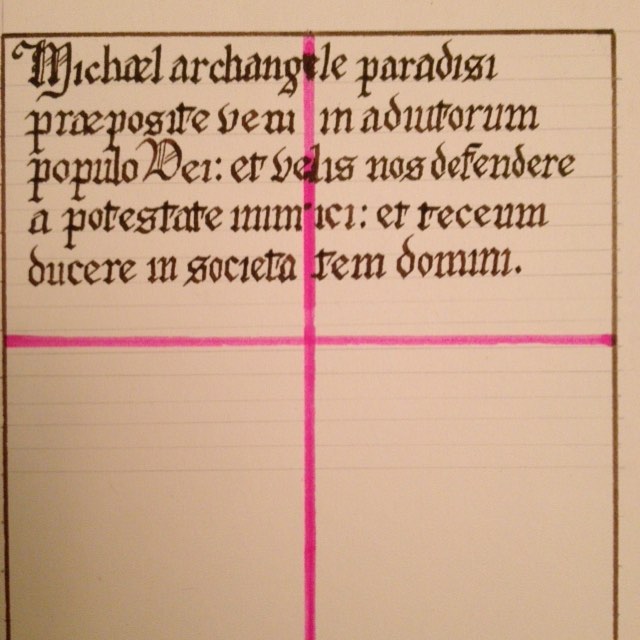 Michæl archangele paradisi
præposite veni in adiutorum
populo Dei: et velis nos defendere
a potestate inimici: et teceum
ducere in societatem domini.